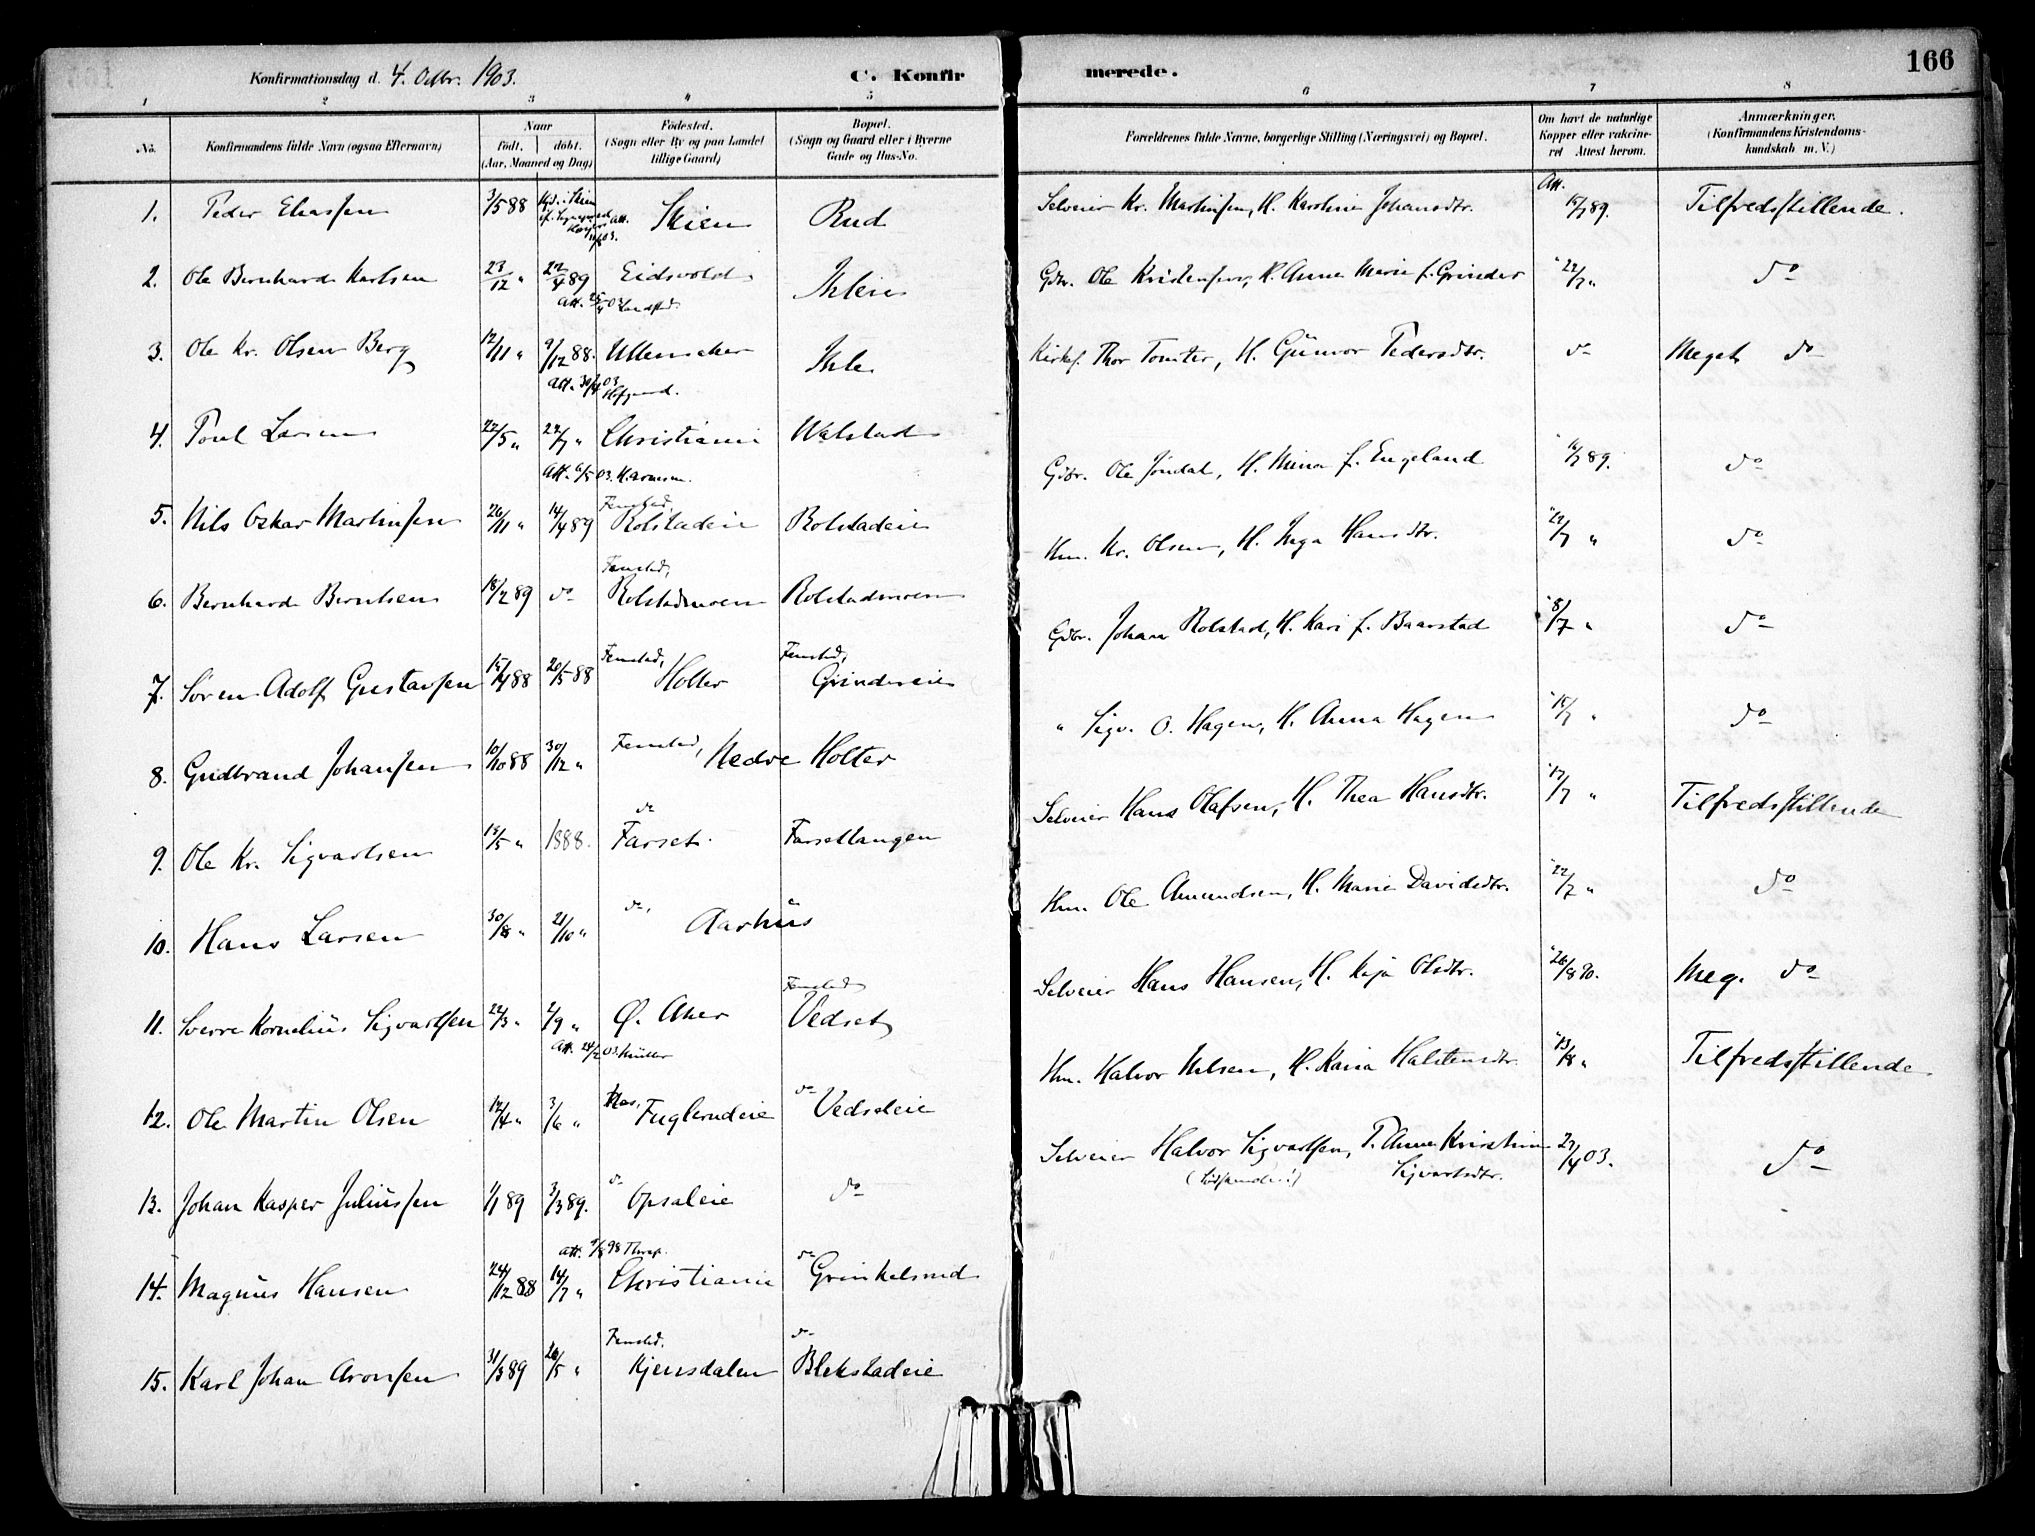 166
Konfirmationsdag d. 4. Octbr. 1903.
C. Konfirmerede.
1 2 3 4 5 6 7 8
No.
Konfirmandens fulde Navn (ogsaa Efternavn)
Naar
født. døbt.
(Aar, Maaned og Dag)
Fødested.
(Sogn eller By og paa Landet
tillige Gaard)
Bopæl.
(Sogn og Gaard eller i Byerne
Gade og Hus-No.
Forældrenes fulde Navne, borgerlige Stilling (Næringsvei) og Bopæl.
Om havt de naturlige
Kopper eller vakcine-
ret Attest herom.
Anmærkninger.
(Konfirmandens Kristendoms-
kundskab m. V.)
1. Peder Eliassen 3/5 88 Skien Rud
2. Ole Bernhard Karlsen 23/12 " 22/4 89 Eidsvold Ihleie
3. Ole Kr. Olsen Berg 12/11 " 9/12 88. Ullensaker Ihle
Att. 30/4 03
4. Poul Larsen 22/5 " 22/7 " Christiania Walstad
5. Nils Oskar Martinsen 26/11 " 14/4 89 Fenstad, Rolstadeie Rolstadeie
6. Bernhard Berntsen 18/2 89 do Fenstad, Rolstadmoen Rolstadmoen
7. Søren Adolf Gustavsen 15/4 88 20/5 88 Fenstad, Holter Fenstad, Grindereie
8. Gudbrand Johansen 10/10 88 30/12 " Fenstad, Nedre Holter
9. Ole Kr. Sigvartsen 15/5 " 1888. do Farset Farsettangen
10. Hans Larsen 30/8 " 21/10 " do, Aarhus
11. Sverre Kornelius Sigvartsen 22/3 " 2/9 " Ø. Aker Fenstad Vedset
Att. 24/2 03. Müller
12. Ole Martin Olsen 12/4 " 3/6 " Fuglerudeie do Vedseteie
13. Johan Kasper Juliussen 1/1 89 3/3 89. do Opsaleie do
14. Magnus Hansen 24/12 88 14/7 " Christiania do Grinkelsrud
15. Karl Johan Aronsen 31/3 89 26/5 " Fenstad. Kjensdalen do Blekstadeie
Selveier Kr. Martinsen, H. Karoline Johansdtr. Att. 15/7 89. Tilfredsstillende.
Gdbr. Ole Kristensen, H. Anne Marie f. Grinder " 22/7 " do
Kirkes. Thor Tomter, H. Gunvor Pedersdtr. do Meget do
Gdbr. Ole Jøndal, H. Mina f. Engeland " 16/7 89. do
Hm. Kr. Olsen, H. Inga Hansdtr. " 22/7 " do
Gdbr. Johan Rolstad, H. Kari f. Baarstad " 8/7 " do
" Sigv. O. Hagen, H. Anna Hagen " 15/7 " do
Selveier Hans Olafsen, H. Thea Hansdtr. " 17/7 " Tilfredsstillende
Hm. Ole Amundsen, H. Marie Davidsdtr. " 22/7 " do
Selveier Hans Hansen, H. Kaja Olsdtr. " 26/8 90. Meg. do
Hm. Halvor Nilsen, H. Karia Halstensdtr. " 13/8 " Tilfredsstillende
Selveier Halvor Sigvartsen, T. Anne Kristine 27/4 03. do
Sigvartsdtr.